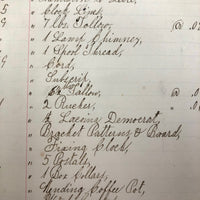 5 " Clock Line,
" 7 lbs Tallow, @ .0
" 1 Lamp Chimney,
" 1 Spool Thread,
" Cord,
" Subscrip
" Tallow, @ .0
" 2 Rucher,
" Democrat,
" Bracket Patterns & Board,
" Fixing Clock,
" 5 Postals,
" 1 Box Collars,
" Mending Coffee Pot,